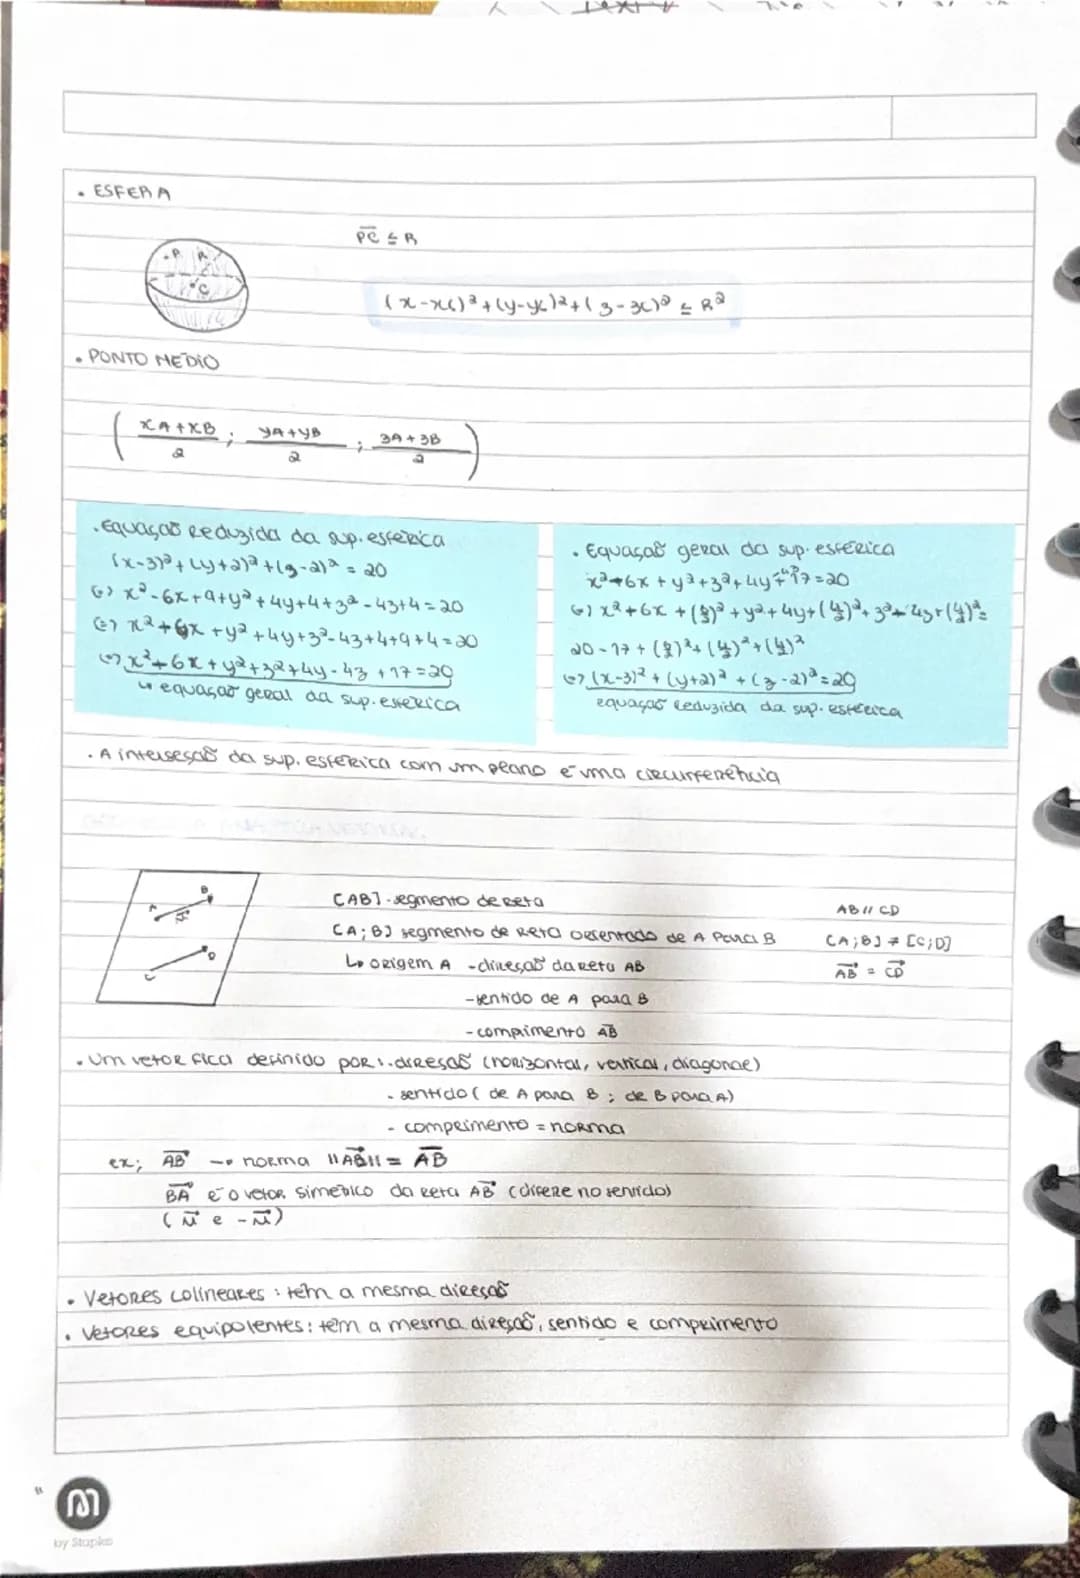 . ESFERA
P R
C
P̅C̅ ≤ R
(x-xc)²+(y-yc)²+(z-zc)² ≤ R²
. PONTO MÉDIO
( xA+xB / 2 ; yA+yB / 2 ; zA+zB / 2 )
. Equação Reduzida da sup. esférica
(x-3)²+(y+2)²+(z-2)² = 20
(=) x²-6x+9+y²+4y+4+z²-4z+4=20
(=) x²+6x+y²+4y+z²-4z+4+9+4=20
(=) x²+6x+y²+z²+4y-4z+17=20
↳ equação geral da sup. esférica
. Equação geral da sup. esférica
x²+6x+y²+z²+4y 17=20
(=) x²+6x+ +y²+4y+ +z² 4z+ =
20-17+
(=) (x-3)²+(y+2)²+(z-2)²=20
equação reduzida da sup. esférica
. A interseção da sup. esférica com um plano é uma circunferência
A B
C D
[AB] - segmento de reta
AB // CD
[A;B] segmento de reta orientado de A para B
[A;B] ≠ [C;D]
↳ origem A - direção da reta AB
A⃗B⃗ = C⃗D⃗
- sentido de A para B
- comprimento A̅B̅
. Um vetor fica definido por: . direção (horizontal, vertical, diagonal)
- sentido ( de A para B ; de B para A)
- comprimento = norma
ex; A⃗B⃗ → norma ||A⃗B⃗|| = A̅B̅
B⃗A⃗ é o vetor simétrico da reta A⃗B⃗ (difere no sentido)
(u⃗ e -u⃗)
. Vetores colineares : têm a mesma direção
. Vetores equipolentes: têm a mesma direção, sentido e comprimento
by Staples